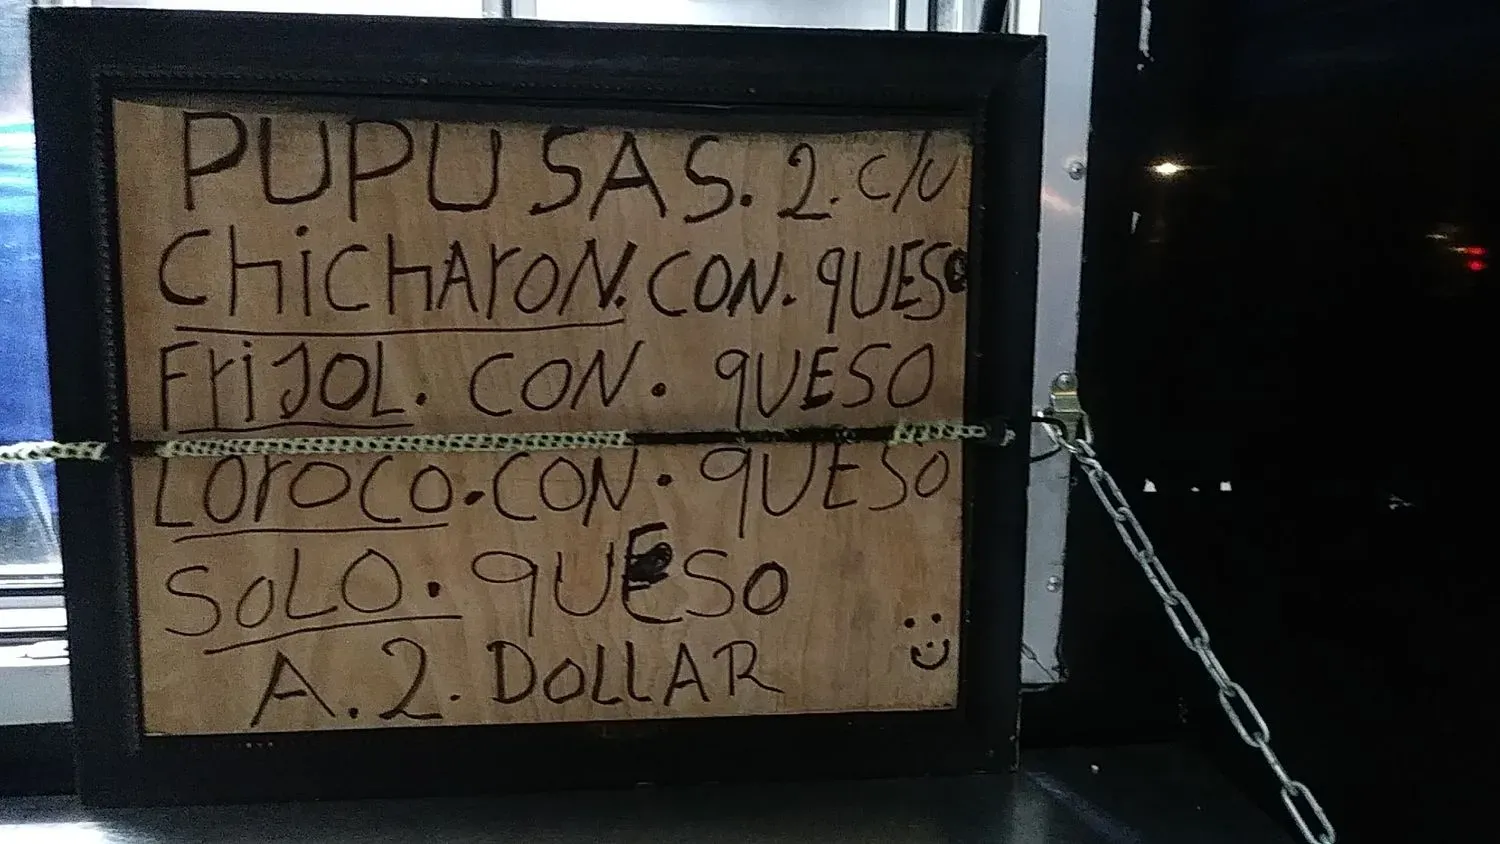 PUPUSAS. 2. c/u
ChichAroN. CON. qUESO
FriJOL. CON. qUESO
Loroco. CON. qUESO
SoLO. qUESO
A. 2. DOLLAR